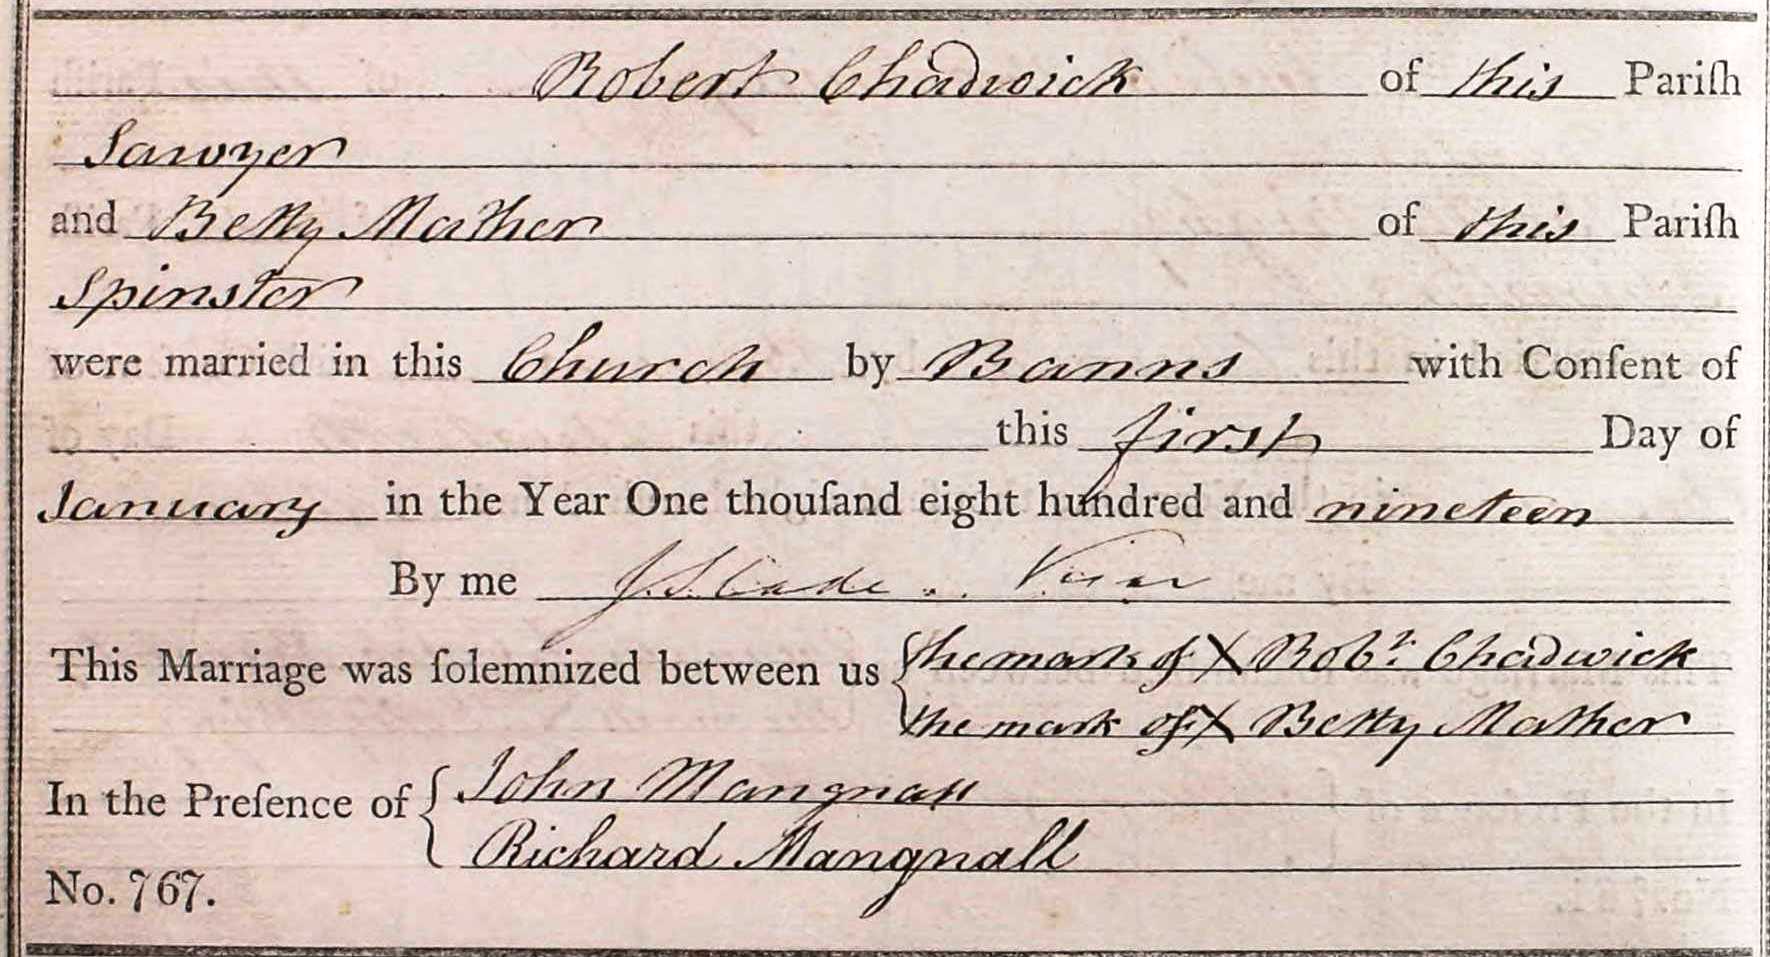 Robert Chadwick of this Pariſh
Sawyer
and Betty Mather of this Pariſh
Spinster
were married in this Church by Banns with Conſent of
this first Day of
January in the Year One thouſand eight hundred and nineteen
By me J. Slade . . Vicar
This Marriage was ſolemnized between us { the mark of X Robt. Chadwick
the mark of X Betty Mather
In the Preſence of { John Mangnall
Richard Mangnall
No. 767.